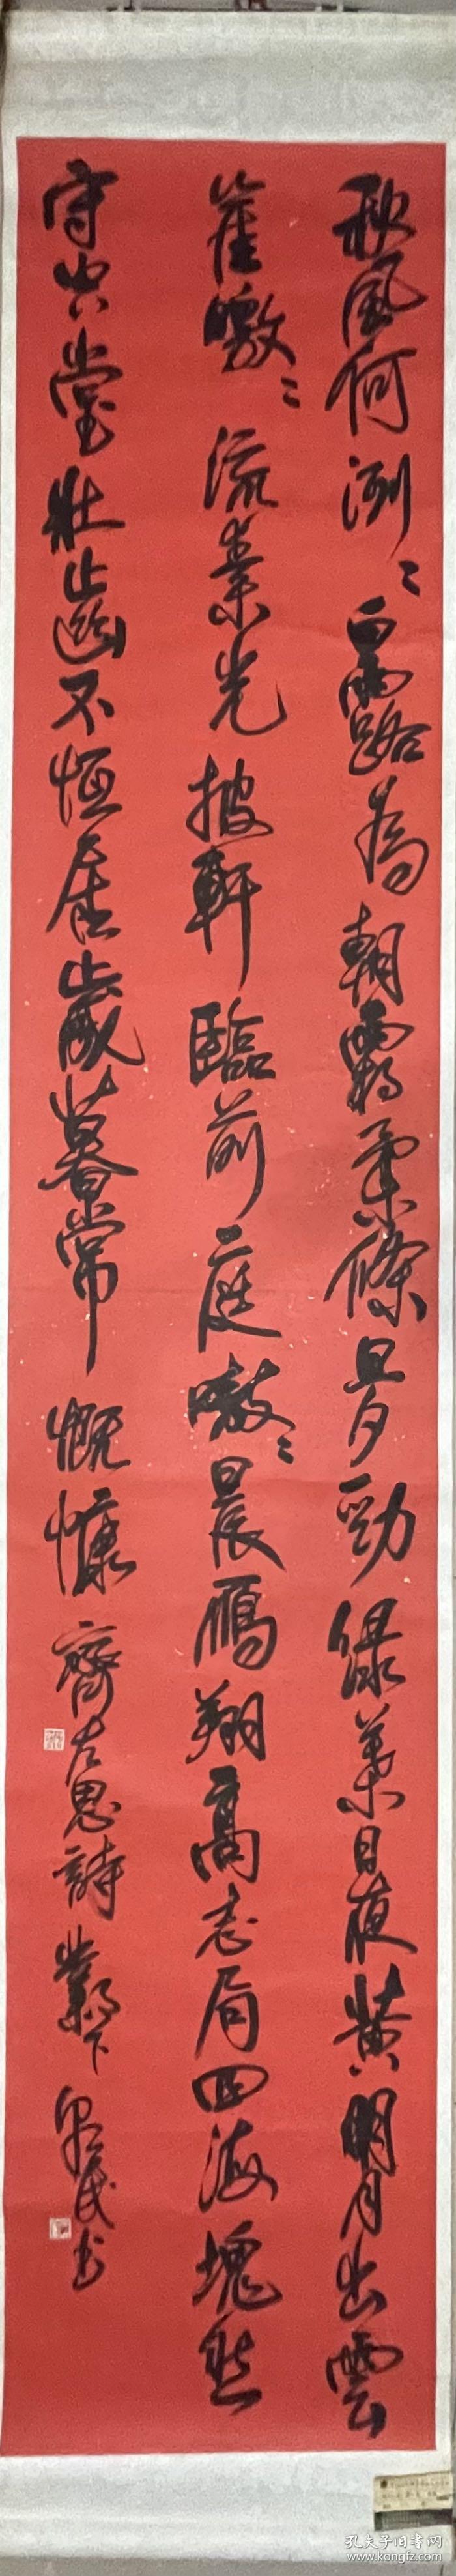 秋風何冽〻白露為朝霜柔條旦夕勁綠葉日夜黃明月出雲
崖曒〻流素光披軒臨前庭嗷〻晨鴈翔高志局四海塊然
守空堂壯齒不恒居歲暮常慨慷 齊左思詩 鄴下 民书
孔夫子旧书网
www.kongfz.com